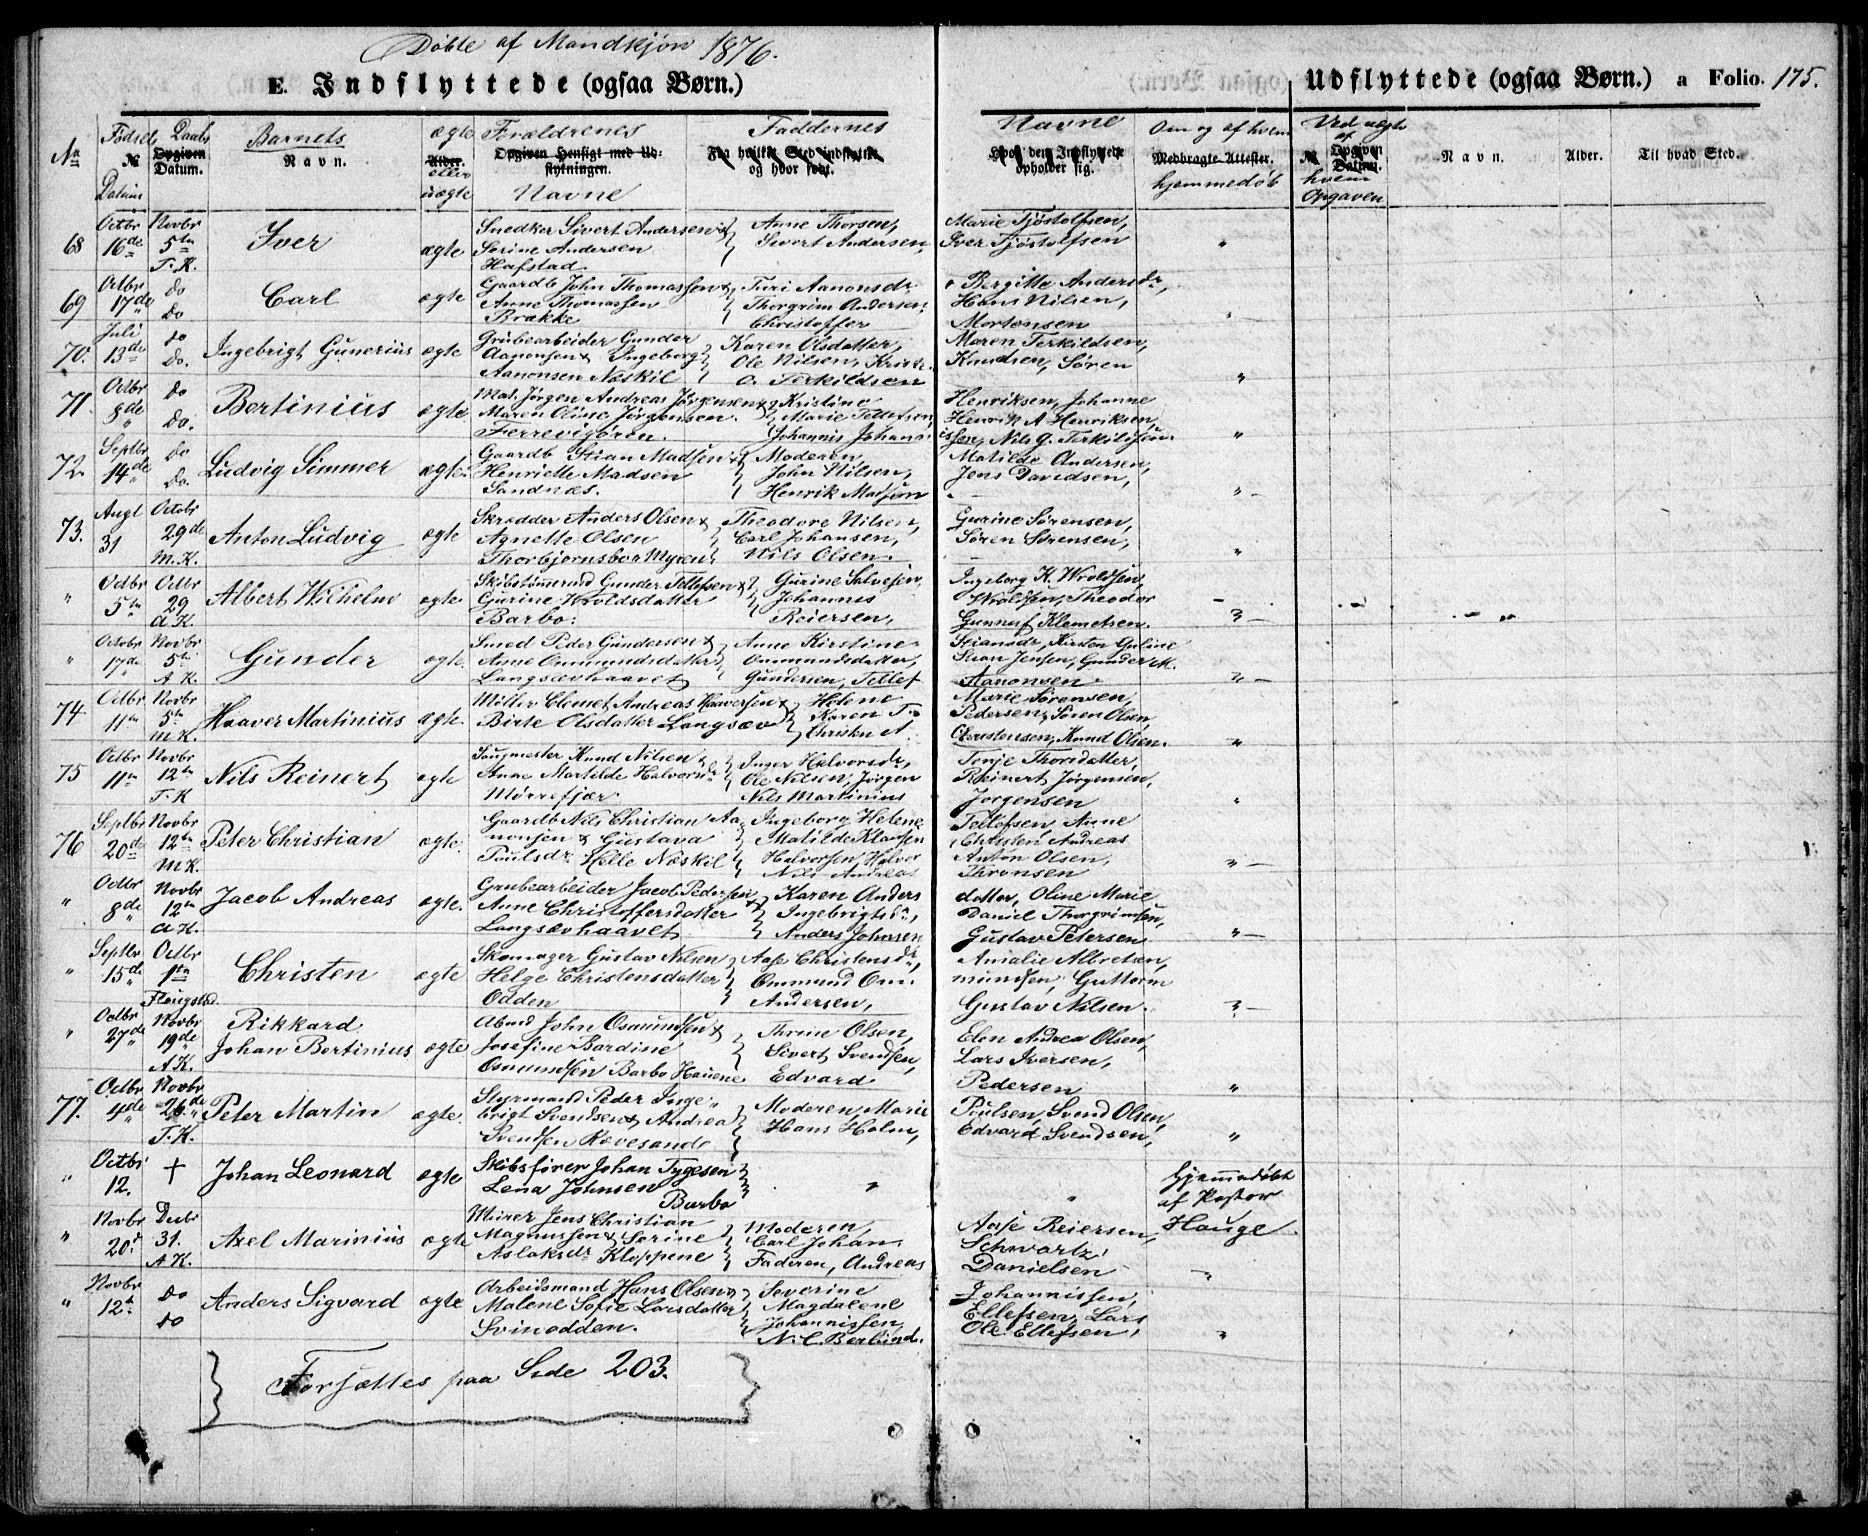 Døbte af Mandkjøn 1876.
E. Indflyttede (ogsaa Børn.)
Udflyttede (ogsaa Børn.) a Folio. 175.
No Fødsels Datum Daabs Datum. Barnets Navn. ægte eller uægte Forældrenes Navne Faddernes Navne Om og af hvem hjemmedøbt Ved uægte af hvem Opgaven
№ Opgiven Datum. Navn. Alder. Opgiven Hensigt med Udflytningen. Fra hvilket Sted indflyttet og hvor født. Hvor den Indflyttede opholder sig. Medbragte Attester. № Opgiven Datum. Navn. Alder. Til hvad Sted.
68 Octbr 16de Novbr 5te T. K. Iver ægte Snedker Sivert Andersen & Serine Andersen Hafstad Anne Thorsen, Marie Tjøstolfsen, Sivert Andersen, Iver Tjøstolfsen "
69 Octbr 17de do do Carl ægte Gaardb John Thomassen & Anne Thomassen Brække Turi Aanonsdr Bergitte Andersdr, Thorgrim Andersen, Hans Nilsen, Christoffer Mortensen "
70. Juli 13de do do. Ingebrigt Gunerius ægte Grubearbeider Gunder Aanonsen & Ingeborg Aanonsen Næskil Karen Olsdatter, Maren Terkildsen, Ole Nilsen, Knudsen, Søren Terkildsen "
71. Octbr 8de do do. Bertinius ægte Mat. Jørgen Andreas Jørgensen & Maren Oline Jørgensen. Ferrevigören. Kristine Henriksen, Johanne Marie Tellefsen, Henrik A Henriksen, Johannis Johannissen, Nils G. Terkildsen. "
72. Septbr 14de do do. Ludvig Simmer ægte. Gaardb Stian Madsen & Henriette Madsen Sandnæs. Moderen, Matilde Andersen, John Nilsen, Jens Davidsen, Henrik Madsen "
73. Augt 31 Octobr 29de M. K. Anton Ludvig ægte Skrædder Anders Olsen & Agnette Olsen Thorbjørnsbo Myren Theodore Nilsen, Gurine Sørensen, Carl Johansen, Søren Sørensen, Nils Olsen. "
" Octbr 5te Octbr 29 A K. Albert Wilhelm ægte. Skibstømmermd Gunder Tellefsen & Gurine Wroldsdatter Barbo: Gurine Salvesen, Ingeborg K. Wroldsen, Johannes Wroldsen, Theodor Reiersen, Gunnuf Klemetsen.
" Octobr 17de Novbr 5te A K. Gunder ægte. Smed Peder Gundersen & Anne Ommundsdatter Langsævhaavet Anne Kirstine Stiansdr, Kirsten Guline Ommundsdatter, Stian Jensen, Gunder M. Gundersen, Tellef Aanonsen
74 Octbr 11te Novbr 5te M K. Haaver Martinius ægte. Møller Clemet Andreas Haaversen & Birte Olsdatter Langsæv Helene Marie Sørensen, Karen T. Pedersen, Søren Olsen, Christen A. Christensen, Knud Olsen. "
75 Octbr 11te Novbr 12te T. K Nils Reinert ægte Saugmester Knud Nilsen & Anne Martilde Halvorsdr Mørrefjær Inger Halvorsdr, Tonje Thorsdatter, Ole Nilsen, Jørgen Reinert Jørgensen, Nils Martinius Jørgensen "
76 Septbr 20de Novbr 12te M K. Peter Christian ægte. Gaardb Nils Christian Aanonsen & Gustava Poulsdr Helle Næskil Ingeborg Helene Tellefsen, Anne Matilde Klausen Christen Andreas Halvorsen, Halvor Anton Olsen, Nils Andreas Thronsen "
" Octbr 8de Novbr 12te A K. Jacob Andreas ægte. Grubearbeider Jacob Pedersen & Anne Christoffersdatter Langsævhaavet Karen Andersdatter, Oline Marie Ingebrigtsdr, Daniel Thorgrimsen, Anders Johnsen Gustav Petersen "
" Septbr 15de Octbr 1te Flaugstad Christen ægte Skomager Gustav Nilsen Helge Christensdatter Odden Aase Christensdr, Amalie Albretsen, Ommund Ommundsen, Guttorm Andersen, Gustav Nilsen.
" Octbr 27de Novbr 19de A K. Rikkard Johan Bertinius ægte Abmd John Osmundsen & Josefine Bardine Osmundsen Barbo Hauene Thrine Olsen, Elen Andrea Olsen, Sivert Svendsen, Lars Iversen, Edvard Pedersen "
77. Octbr 4de Novbr 26de T. K. Peter Martin ægte. Styrmand Peder Ingebrigt Svendsen & Andrea Svendsen Rævesande Moderen, Marie Poulsen, Svend Olsen, Hans Holm, Edvard Svendsen, "
" Octbr 12. † Johan Leonard ægte Skibsfører Johan Tygesen Lena Johnsen Barbo " " Hjemmedøbt af Pastor Hauge
" Novbr 20d Decbr 31. A K. Axel Marinius ægte Murer Jens Christian Magnussen & Serine Aslaksdr Kloppene Moderen, Aase Reiersen, Carl Johan Schwartz, Faderen, Andreas Danielsen "
" Novbr 12te do do Anders Sigvard ægte Arbeidsmand Hans Olsen & Malene Sofie Larsdatter Svinodden. Severine Johannissen, Magdalene Ellefsen, Lars Johannissen, Ole Ellefsen, N. C. Berlund. "
Forsættes paa Side 203.